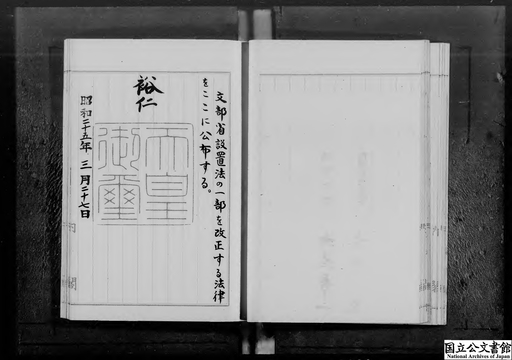 文部省設置法の一部を改正する法律
をここに公布する。
裕仁
天皇
御璽
昭和二十五年三月二十七日
内閣
国立公文書館
National Archives of Japan